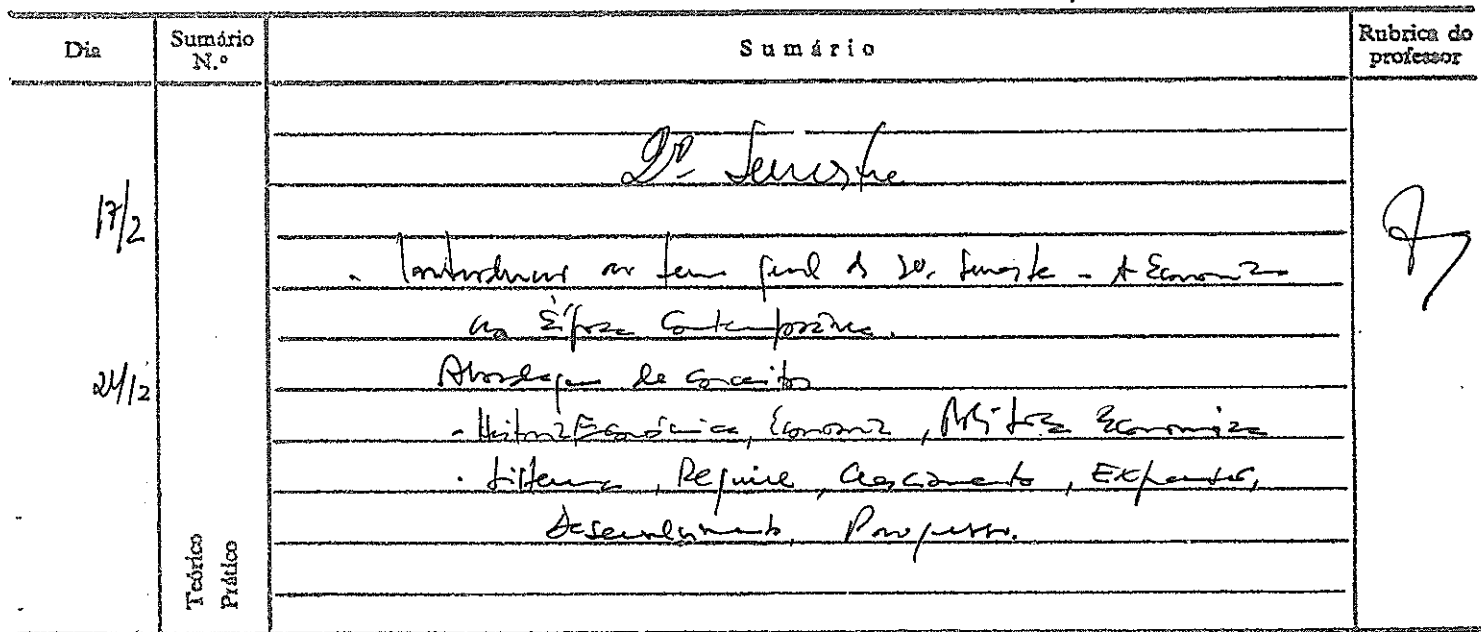 Dia Sumário N.º Sumário Rubrica do professor
2º Semestre
17/2
- Introdução ao tema geral do 2º. Semestre - A Economia
na Época Contemporânea.
24/2 Abordagem de conceitos
- História Económica, Economia, Política Económica
- Sistema, Regime, Crescimento, Expansão,
Desenvolvimento, Progresso.
Teórico
Prático